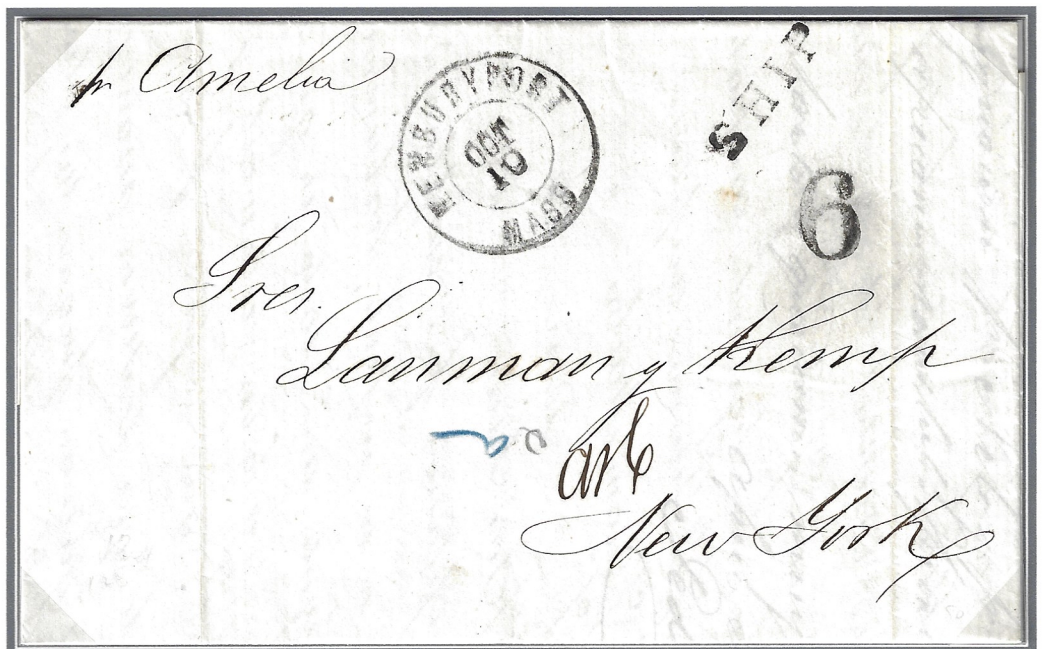 pr Amelia
NEWBURYPORT
OCT
10
MASS
SHIP
6
Sres.
Lanman y Kemp
New York